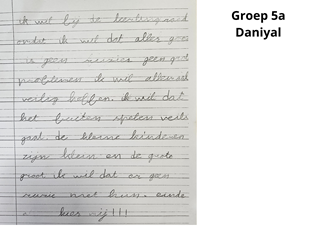 ik wil bij de leerlingenraad
omdat ik wil dat alles goed
is geen ruzies geen
problemen ik wil
veilig ik wil dat
het buiten spelen veilig
gaat. de kleine kinderen
zijn klein en de grote
groot ik wil dat er geen
ruzie met hun. einde
kies mij!!!
Groep 5a
Daniyal